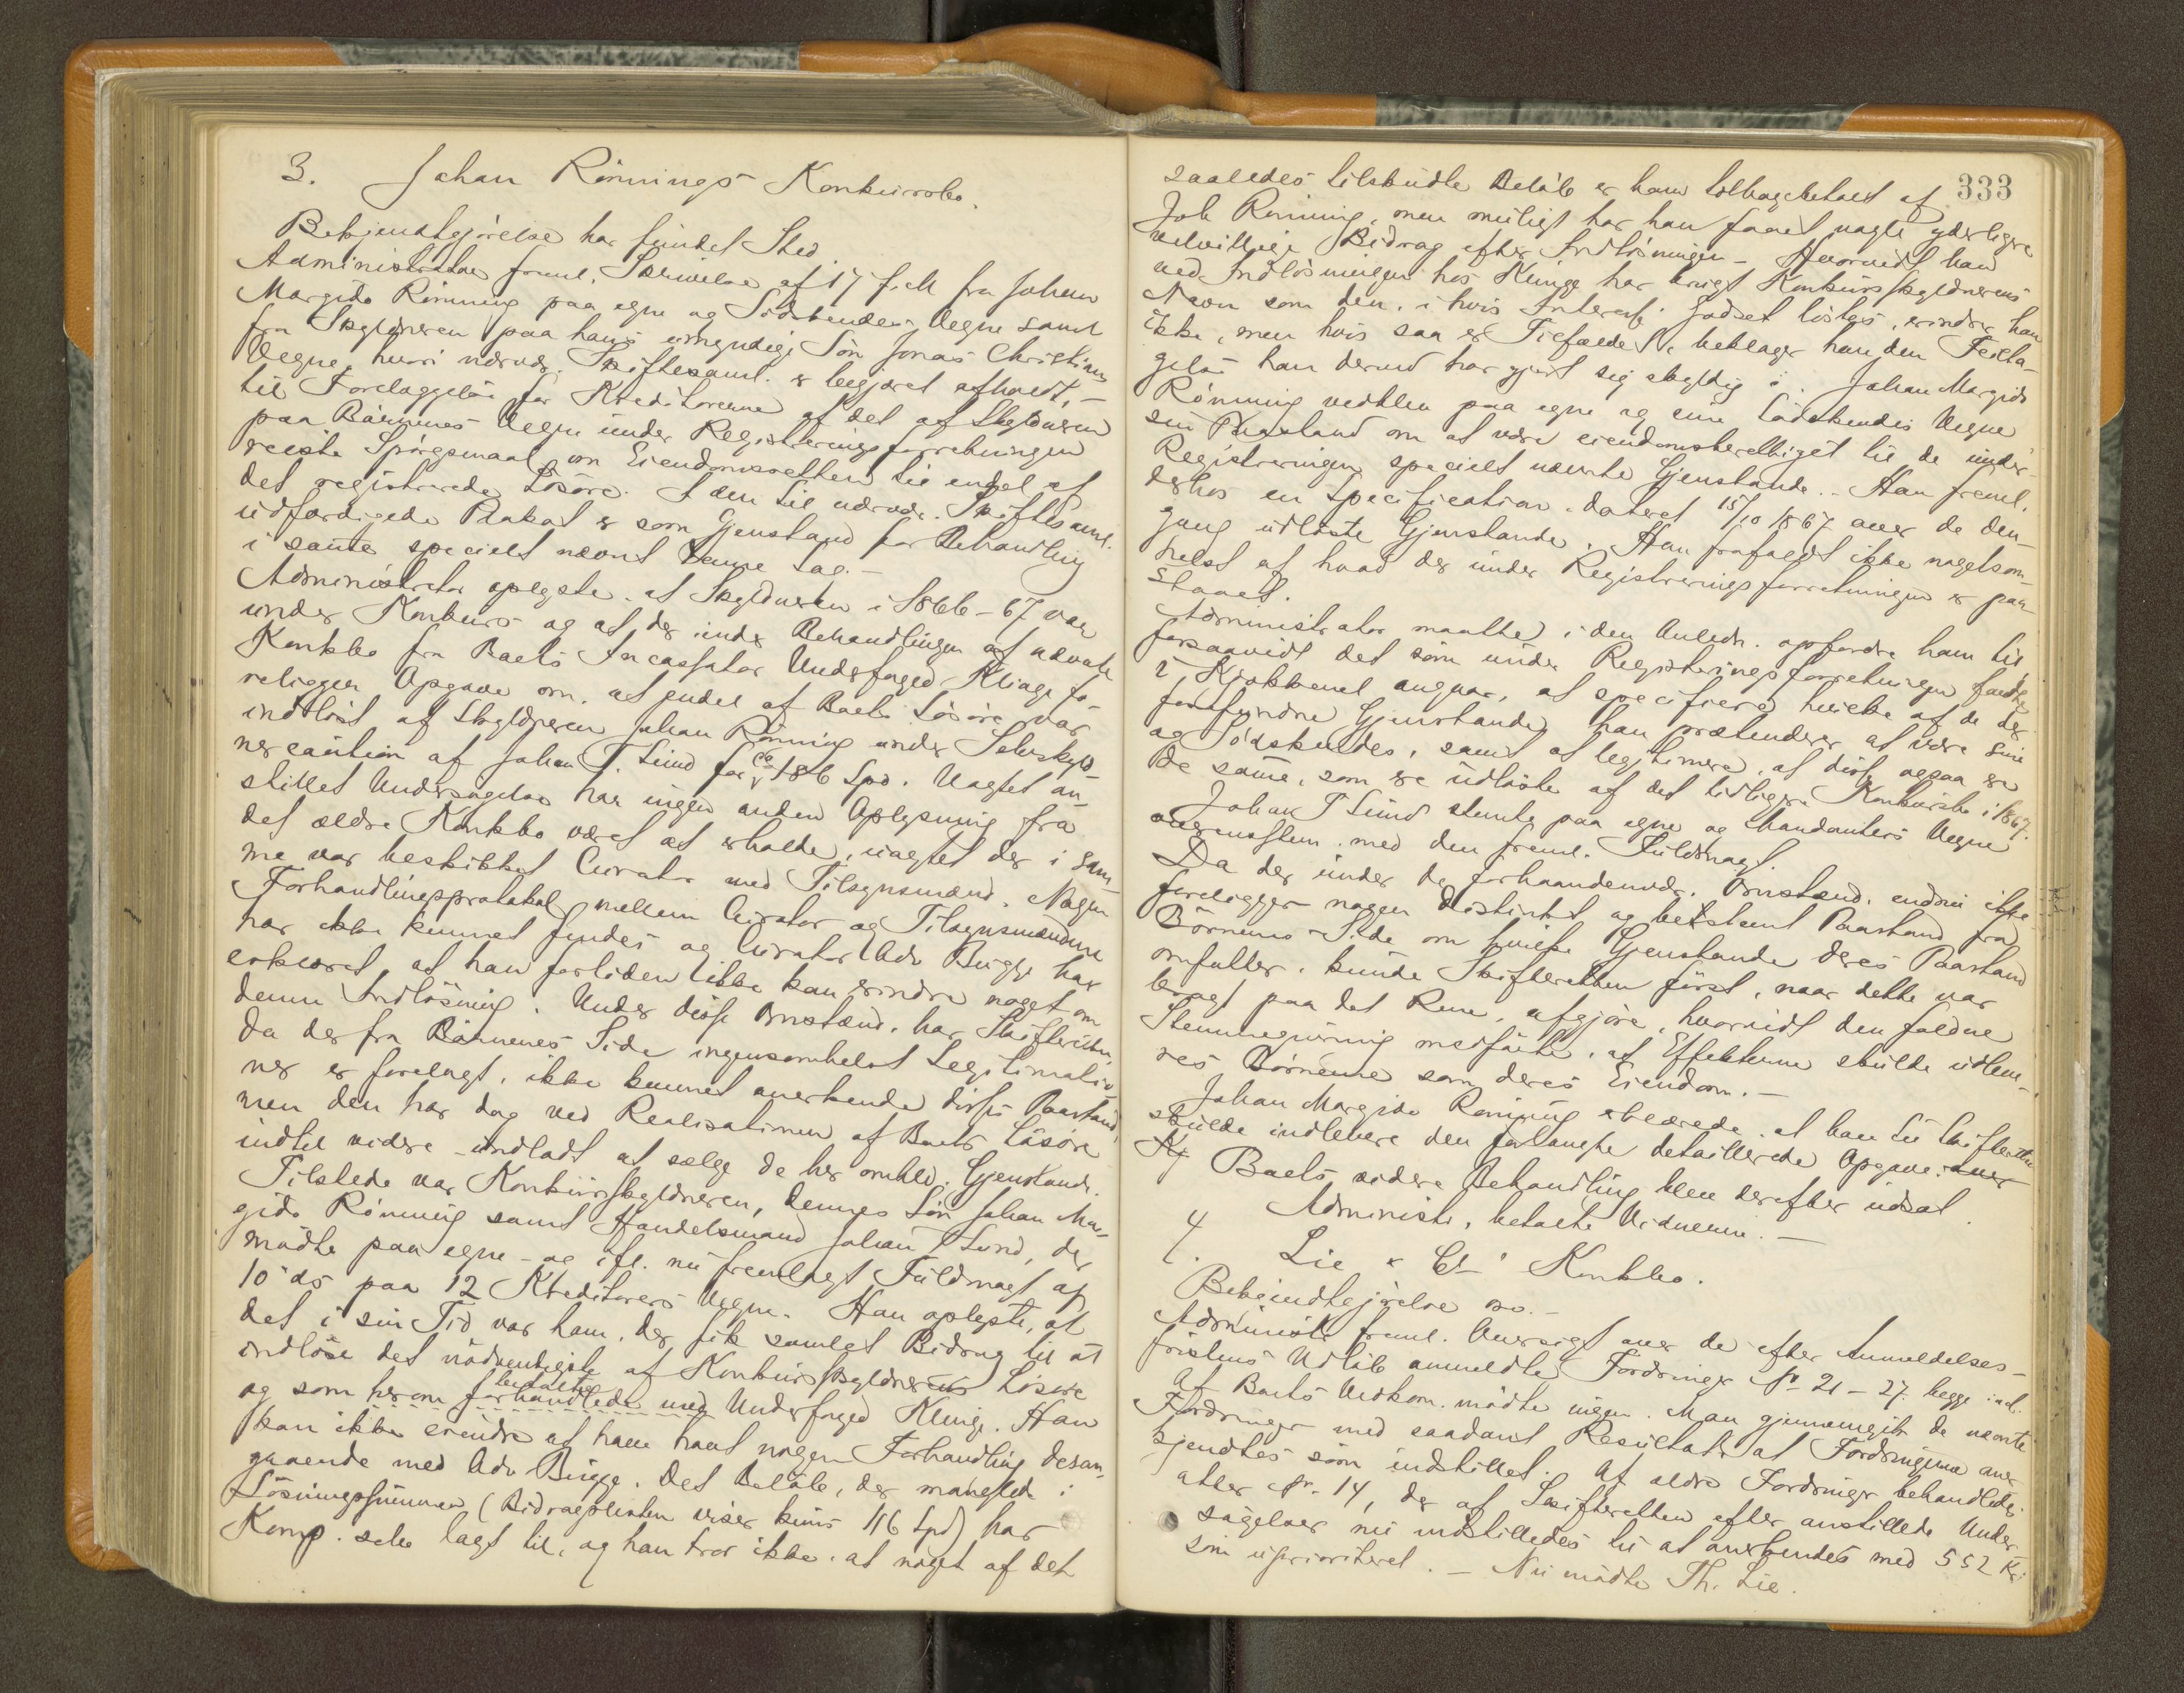 3. Johan Rönnings Konkursbo.
Bekjendtgjörelse har fundet Sted.
Administrator freml. Skrivelse af 17 f. M fra Johan
Margido Rönning paa egne og Södskendes Vegne samt
fra Skyldneren paa hans umyndige Sön Jonas Christians
Vegne, hvori nærvær. Skiftesaml. er begjæret afholdt, -
til Forelæggelse for Kreditorerne af det af Skyldneren
paa Börnenes Vegne under Registreringsforretningen
reiste Spörgsmaal om Eiendomsretten til endel af
det registrerede Lösöre. I den til nærvær. Skiftesaml.
udfærdigede Plakat er som Gjenstand for Behandling
i samme specielt nævnt denne Sag. -
Administrator oplyste, at Skyldneren i 1866-67 var
under Konkurs og at der under Behandlingen af nævnte
Konkbo fra Boets Incassator Underfoged Klinge fo-
religger Opgave om, at endel af Boets Lösöre var
indlöst af Skyldneren Johan Rönning under Selvskyld-
nercaution af Johan T. Lund for Ca 186 Spd. Uagtet an-
stillet Undersögelse har ingen anden Oplysning fra
det ældre Konkbo været at erholde, uagtet der i sam-
me var beskikket Curator med Tilsynsmænd. Nogen
Forhandlingsprotokol mellem Curator og Tilsynsmændene
har ikke kunnet findes og Curator Adv Bugge har
erklæret, at han fortiden ikke kan erindre noget om
denne Indlösning. Under disse Omstænd. har Skifteretten,
da der fra Börnenes Side ingensomhelst Legitimatio-
ner er forelagt, ikke kunnet anerkende disses Paastand,
men den har dog ved Realisationen af Boets Lösöre
indtil videre undladt at sælge de her omhld. Gjenstande.
Tilstede var Konkursskyldneren, dennes Sön Johan Mar-
gido Rönning samt Handelsmand Johan T Lund, der
mödte paa egne - og ifl. nu fremlagt Fuldmagt af
10 ds paa 12 Kreditorers Vegne. Han oplyste, at
det i sin Tid var ham, der fik samlet Bidrag til at
indlöse det nödvendigste af Konkursskyldnerens Lösöre
betalte
og som herom forhandlede med Underfoged Klinge. Han
kan ikke erindre at have havt nogen Forhandling desan-
gaaende med Adv Bugge. Det Belöb, der manglede i
Lösningssummen (Bidragslisten viser kuns 116 Spd) har
Komp. selv lagt til, og han tror ikke, at noget af det
333
saaledes tilskudte Belöb er ham tilbagebetalt af
Joh Rönning, men muligt har han faaet nogle yderligere
velvillige Bidrag efter Indlösningen - Hvorvidt han
ved Indlösningen hos Klinge har brugt Konkursskyldnerens
Navn som den, i hvis Interesse Godset löstes, erindrer han
ikke, men hvis saa er Tilfældet, beklager han den Feilta-
gelse han derved har gjort sig skyldig i. Johan Margido
Rönning vedblev paa egne og sine Södskendes Vegne
sin Paastand om at være eiendomsberettiget til de under
Registreringen specielt nævnte Gjenstande. - Han freml.
derhos en Specification dateret 15/10 1867 over de den-
gang udlöste Gjenstande. Han frafaldt ikke nogetsom-
helst af hvad der under Registreringsforretningen er paa-
staaet.
Administrator maatte i den Anledn. opfordre ham til
forsaavidt det som under Registreringsforretningen fandtes
i Kjökkenet angaar, at specificere hvilke af de der
forefundne Gjenstande han prætenderer at være sine
og Södskendes, samt at legitimere, at disse ogsaa ere
de samme, som ere udlöste af det tidligere Konkursbo i 1867.
Johan T Lund stemte paa egne og Mandanters Vegne
overensstem. med den freml. Fuldmagt.
Da der under de forhaandenvær. Omstænd. endnu ikke
foreligger nogen distinkt og bestemt Paastand fra
Börnenes Side om hvilke Gjenstande deres Paastand
omfatter, kunde Skifteretten först, naar dette var
bragt paa det Rene, afgjöre, hvorvidt den faldne
Stemmegivning medförte, at Effekterne skulde udleve-
res Börnene som deres Eiendom. -
Johan Margido Rönning erklærede, at han til Skifteretten
skulde indlevere den forlangte detaillerede Opgave. over
Boets videre Behandling blev derefter udsat.
Administr. betalte Vidnerne. -
4. Lie & Co' Konkbo.
Bekjendtgjörelse osv. -
Administr. freml. Oversigt over de efter Anmeldelses-
fristens Udlöb anmeldte Fordringer No 21 - 27 begge incl.
Af Boets Vedkom. mödte ingen. Man gjennemgik de nævnte
Fordringer med saadant Resultat at Fordringerne aner-
kjendtes som indstillet. Af ældre Fordringer behandledes
atter No. 14, der af Skifteretten efter anstillede Under-
sögelser nu indstilledes til at anerkendes med 552 Kr
som uprioriteret. - Nu mödte Th. Lie.